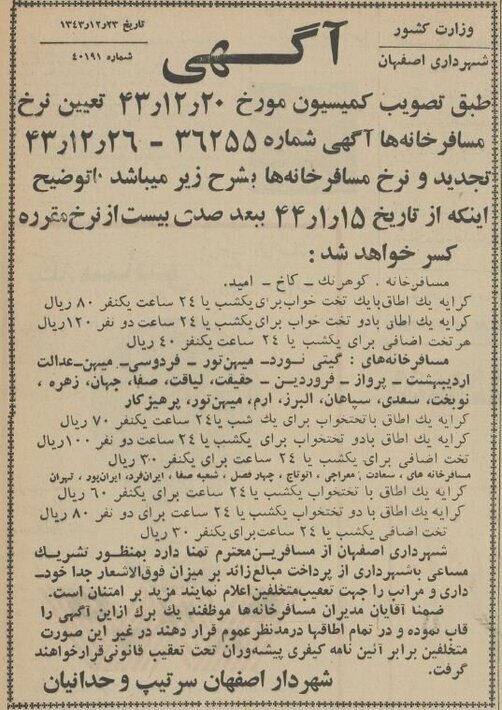 وزارت کشور
شهرداری اصفهان
آگهی
تاریخ ۱۳۴۳ر۱۲ر۲۳
شماره ۴۰۱۹۱
طبق تصویب کمیسیون مورخ ۴۳ر۱۲ر۲۰ تعیین نرخ
مسافرخانه‌ها آگهی شماره ۳۶۲۵۵ - ۴۳ر۱۲ر۲۶
تجدید و نرخ مسافرخانه‌ها بشرح زیر میباشد باتوضیح
اینکه از تاریخ ۴۴ر۱ر۱۵ ببعد صدی بیست از نرخ مقرره
کسر خواهد شد :
مسافرخانه . کوهرنک - کاخ - امید.
کرایه یك اطاق بایك تخت خواب برای یکشب یا ۲۴ ساعت یکنفر ۸۰ ریال
کرایه یك اطاق بادو تخت خواب برای یکشب یا ۲۴ ساعت دو نفر ۱۲۰ ریال
هر تخت اضافی برای یکشب یا ۲۴ ساعت یکنفر ۴۰ ریال
مسافرخانه‌های : گیتی نورد- میهن تور - فردوسی- میهن-عدالت
اردیبهشت - پرواز - فروردین - حقیقت، لیاقت، صفا، جهان، زهره ،
نوبخت، سعدی، سپاهان، البرز، ارم، میهن تور، پرهیزکار
کرایه یك اطاق با تختخواب برای یك شب یا ۲۴ ساعت یکنفر ۷۰ ریال
کرایه یك اطاق بادو تختخواب برای یکشب یا ۲۴ ساعت دو نفر ۱۰۰ ریال
تخت اضافی برای یکشب یا ۲۴ ساعت برای یکنفر ۳۰ ریال
مسافرخانه های ، سعادت ، معراجی ، اتوتاج ، چهار فصل ، شعبه صفا ، ایران‌فرد، ایران‌پور ، تهران
کرایه یك اطاق با تختخواب یکشب یا ۲۴ ساعت برای یکنفر ۶۰ ریال
کرایه یك اطاق با دو تختخواب یکشب یا ۲۴ ساعت برای دو نفر ۸۰ ریال
تخت اضافی یکشب یا ۲۴ ساعت برای یکنفر ۳۰ ریال
شهرداری اصفهان از مسافرین محترم تمنا دارد بمنظور تشریك
مساعی با شهرداری از پرداخت مبالغ زائد بر میزان فوق‌الاشعار جدا خود-
داری و مراتب را جهت تعقیب متخلفین اعلام نمایند مزید بر امتنان است.
ضمنا آقایان مدیران مسافرخانه‌ها موظفند یك برك ازاین آگهی را
قاب نموده و در تمام اطاقها درمدنظر عموم قرار دهند در غیر این صورت
متخلفین برابر آئین نامه کیفری پیشه‌وران تحت تعقیب قانونی قرارخواهند
گرفت.
شهردار اصفهان سرتیپ وحدانیان